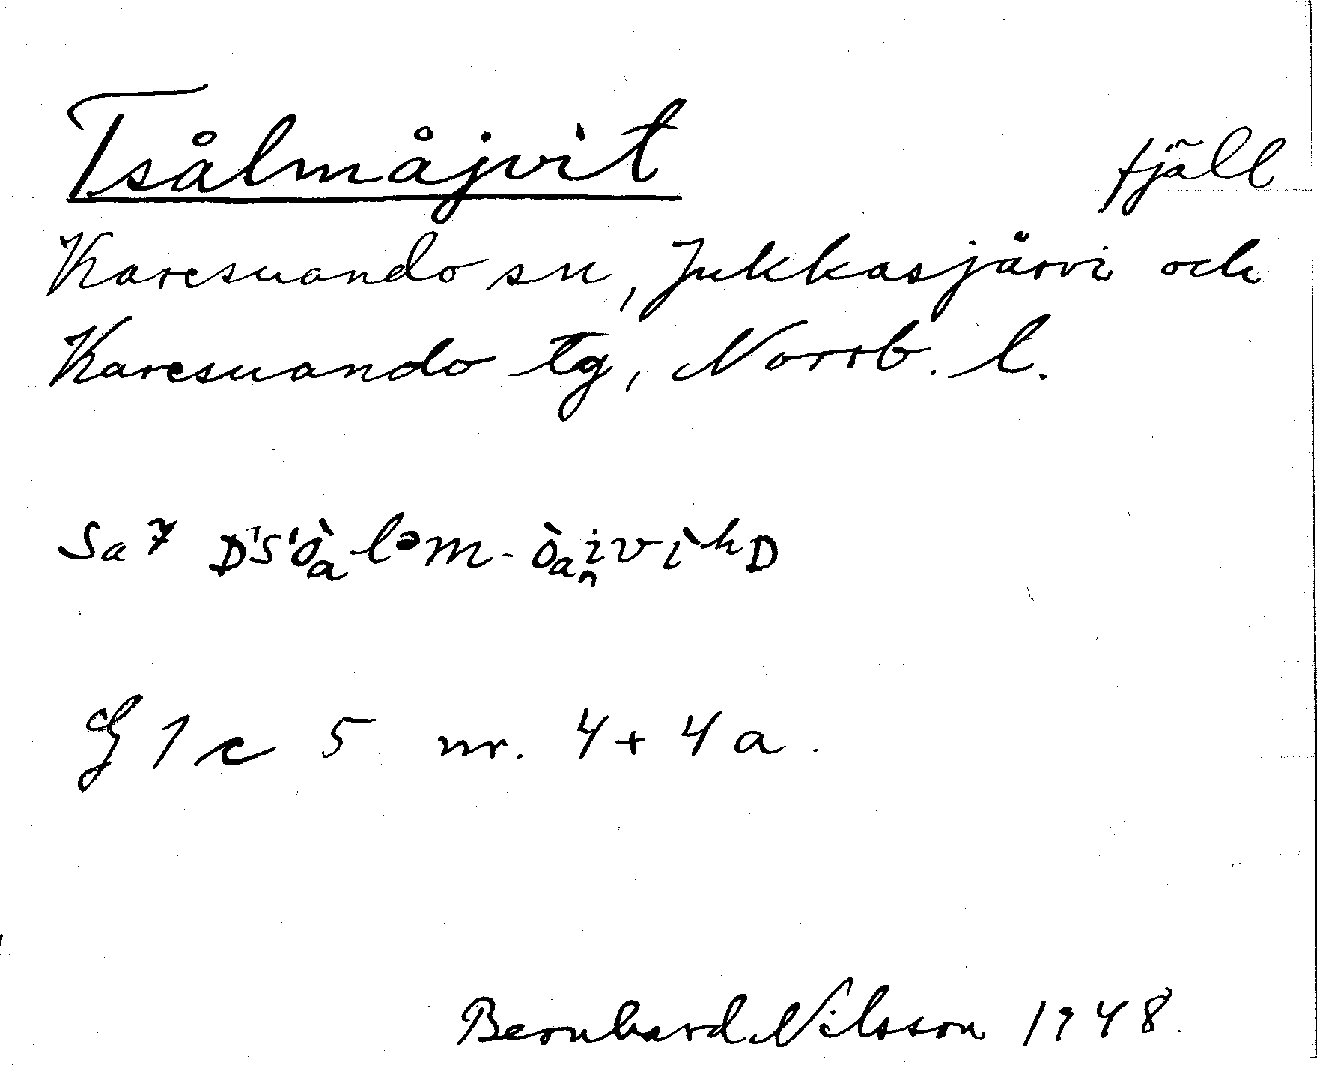 Tsålmåjvit fjäll
Karesuando sn, Jukkasjärvi och
Karesuando tg, Norrb. l.
Sa 7 D's'òₐlᵊm-òₐi̯vìʰD
G 1 c 5 nr. 4 + 4 a.
Bernhard Nilsson 1948.